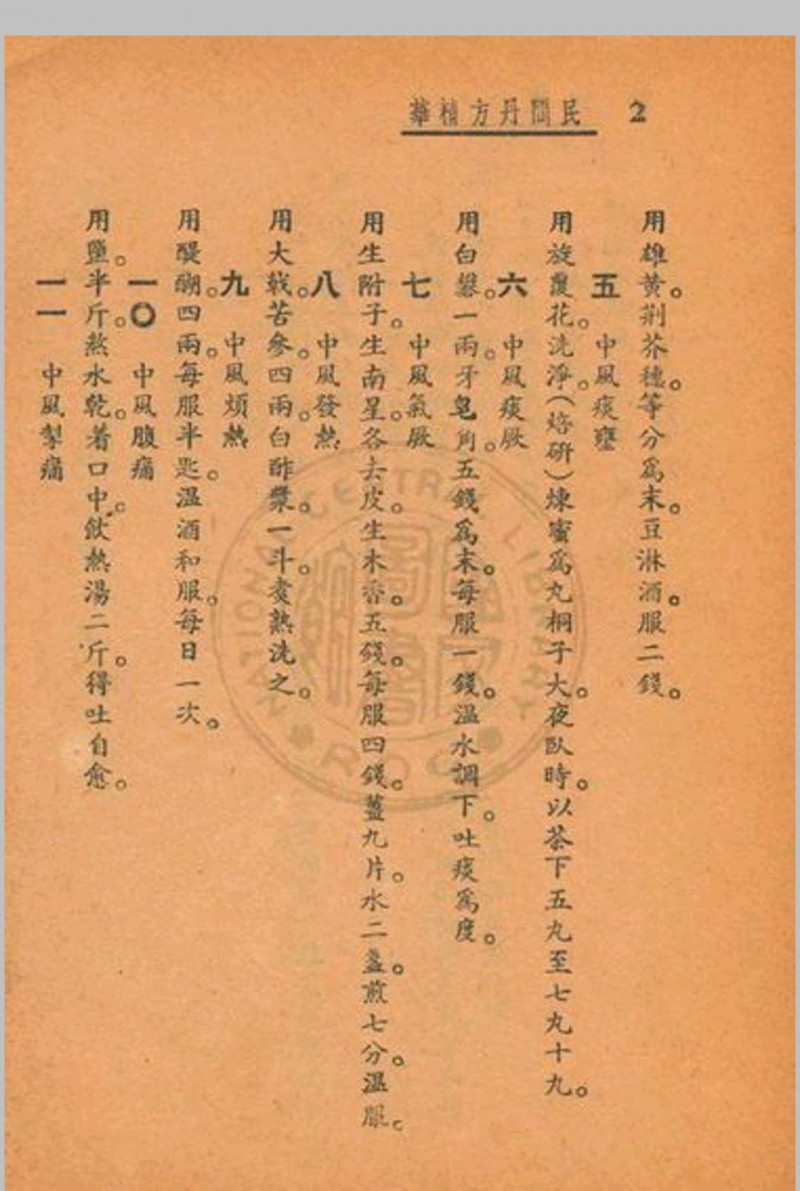 民間丹方精華 2
用雄黃。荆芥穗。等分爲末。豆淋酒。服二錢。
五 中風痰壅
用旋覆花。洗淨。(焙研)煉蜜爲丸桐子大。夜臥時。以茶下五丸至七丸十丸。
六 中風痰厥
用白礬。一兩。牙皂角。五錢爲末。每服一錢。溫水調下。吐痰爲度。
七 中風氣厥
用生附子。生南星。各去皮。生木香。五錢。每服四錢。薑九片。水二盞。煎七分。溫服。
八 中風發熱
用大戟。苦參。四兩。白酢漿。一斗。煮熱洗之。
九 中風煩熱
用醍醐。四兩。每服半匙。溫酒和服。每日一次。
一〇 中風腹痛
用鹽。半斤。熬水乾。着口中。飲熱湯二斤。得吐自愈。
一一 中風掣痛
NATIONAL CENTRAL LIBRARY
ROC